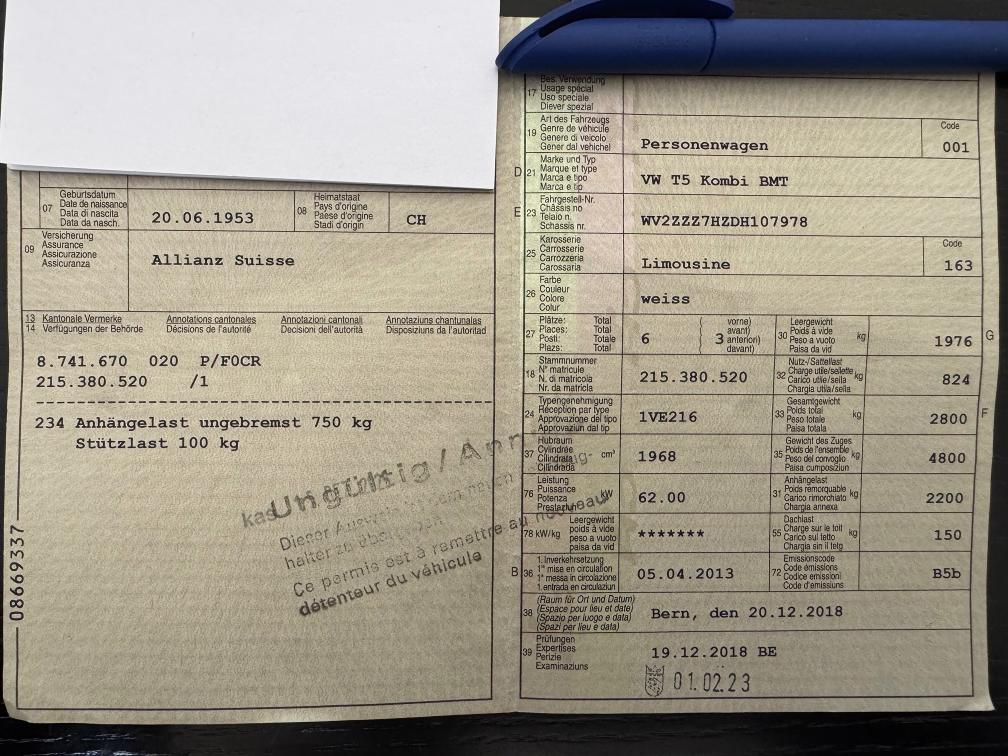 07
Geburtsdatum
Date de naissance
Data di nascita
Data da nasch.
20.06.1953
08
Heimatstaat
Pays d'origine
Paese d'origine
Stadi d'origin
CH
09
Versicherung
Assurance
Assicurazione
Assicuranza
Allianz Suisse
13 Kantonale Vermerke Annotations cantonales Annotazioni cantonali Annotaziuns chantunalas
14 Verfügungen der Behörde Décisions de l'autorité Decisioni dell'autorità Disposiziuns da l'autoritad
8.741.670 020 P/F0CR
215.380.520 /1
234 Anhängelast ungebremst 750 kg
Stützlast 100 kg
Ungültig/Ann
Dieser Ausweis dem neuen
halter zu
Ce permis est à remettre au nouveau
détenteur du véhicule
08669337
17
Bes. Verwendung
Usage spécial
Uso speciale
Diever spezial
19
Art des Fahrzeugs
Genre de véhicule
Genere di veicolo
Gener dal vehichel
Personenwagen
Code
001
D 21
Marke und Typ
Marque et type
Marca e tipo
Marca e tip
VW T5 Kombi BMT
E 23
Fahrgestell-Nr.
Châssis no
Telaio n.
Schassis nr.
WV2ZZZ7HZDH107978
25
Karosserie
Carrosserie
Carrozzeria
Carossaria
Limousine
Code
163
26
Farbe
Couleur
Colore
Colur
weiss
27
Plätze: Total
Places: Total
Posti: Totale
Plazs: Total
6
( vorne)
( avant)
3 anteriori)
( davant)
30
Leergewicht
Poids à vide
Peso a vuoto
Paisa da vid
kg
1976
G
18
Stammnummer
N° matricule
N. di matricola
Nr. da matricla
215.380.520
32
Nutz-/Sattellast
Charge utile/sellette
Carico utile/sella
Chargia utila/sella
kg
824
24
Typengenehmigung
Réception par type
Approvazione del tipo
Approvaziun dal tip
1VE216
33
Gesamtgewicht
Poids total
Peso totale
Paisa totala
kg
2800
F
37
Hubraum
Cylindrée
Cilindrata
Cilindrada
cm³
1968
35
Gewicht des Zuges
Poids de l'ensemble
Peso del convoglio
Paisa cumposiziun
kg
4800
76
Leistung
Puissance
Potenza
Prestaziun
kW
62.00
31
Anhängelast
Poids remorquable
Carico rimorchiato
Chargia annexa
kg
2200
78 kW/kg
Leergewicht
poids à vide
peso a vuoto
paisa da vid
*******
55
Dachlast
Charge sur le toit
Carico sul tetto
Chargia sin il tetg
kg
150
B 36
1. Inverkehrsetzung
1re mise en circulation
1a messa in circolazione
1. entrada en circulaziun
05.04.2013
72
Emissionscode
Code émissions
Codice emissioni
Code d'emissiuns
B5b
38
(Raum für Ort und Datum)
(Espace pour lieu et date)
(Spazio per luogo e data)
(Spazi per lieu e data)
Bern, den 20.12.2018
39
Prüfungen
Expertises
Perizie
Examinaziuns
19.12.2018 BE
01.02.23